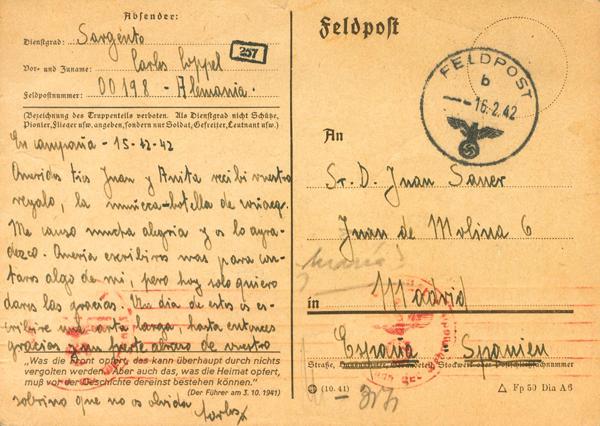 Absender:
Dienstgrad: Sargento
Vor- und Zuname: Carlos Coppel
Feldpostnummer: 00198 - Alemania.
257
(Bezeichnung des Truppenteils verboten. Als Dienstgrad nicht Schütze,
Pionier, Flieger usw. angeben, sondern nur Soldat, Gefreiter, Leutnant usw.)
En campaña - 15-42-42
Queridos tíos Juan y Anita recibí vuestro
regalo, la muñeca-botella de
Me causo mucha alegria y os lo agra-
dezco. Queria escribiros mas para con-
taros algo de mi, pero hoy solo quiero
daros las gracias. Un dia de estos os es-
cribire una carta larga, hasta entonces
gracias y un fuerte abrazo de vuestro
„Was die Front opfert, das kann überhaupt durch nichts
vergolten werden. Aber auch das, was die Heimat opfert,
muß vor der Geschichte dereinst bestehen können."
(Der Führer am 3. 10. 1941)
sobrino que no os olvida
Carlos
Feldpost
FELDPOST
b
-16.2.42
An
Sr. D. Juan Sauer
Juan de Molina 6
in Madrid
España Spanien
Straße, Hausnummer, Gebäudeteil, Stockwerk oder Postschließfachnummer
(10. 41)
Fp 50 Din A 6